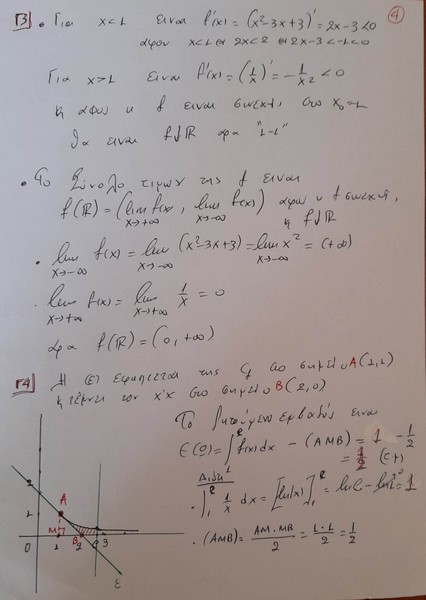 ④
Γ3 • Για x<1 ειναι f'(x) = (x²-3x+3)' = 2x-3<0
αφου x<1 ⇔ 2x<2 ⇔ 2x-3<-1<0
Για x>1 ειναι f'(x) = (1/x)' = -1/x² <0
κ αφου η f ειναι συνεχής στο x₀=1
θα ειναι f↓ℝ αρα "1-1"
• Το Σύνολο τιμων της f ειναι
f(ℝ) = (lim f(x), lim f(x)) αφου η f συνεχής
x→+∞ x→-∞ κ f↓ℝ
• lim f(x) = lim (x²-3x+3) = lim x² = (+∞)
x→-∞ x→-∞ x→-∞
. lim f(x) = lim 1/x = 0
x→+∞ x→+∞
αρα f(ℝ) = (0,+∞)
Γ4 Η (ε) εφαπτεται της Cf στο σημείο A(1,1)
κ τέμνει τον x'x στο σημείο B(2,0)
Το ζητούμενο εμβαδός ειναι
E(Ω) = ∫₁ᵉ f(x)dx - (AMB) = 1 - 1/2
= 1/2 (ετ)
Διότι
• ∫₁ᵉ 1/x dx = [ln|x|]₁ᵉ = ln e - ln1 = 1
• (AMB) = AM·MB/2 = 1·1/2 = 1/2
2
A
1
M
B
0 1 2 e 3
ε